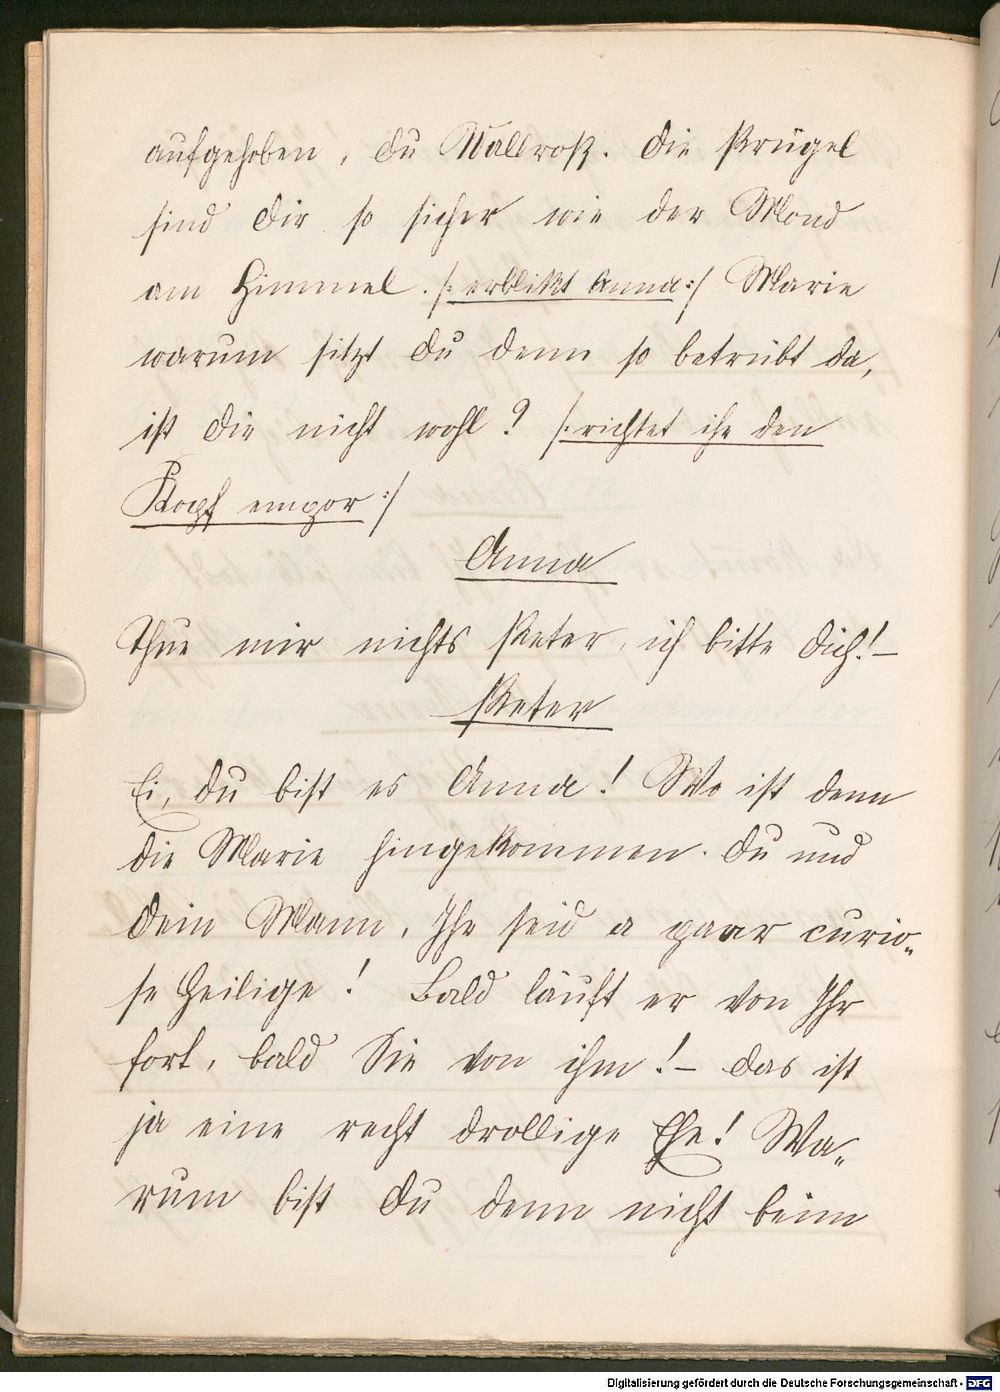 aufgehoben, du Wallroß. Die Prügel
sind dir so sicher wie der Mond
am Himmel. /: erblikt Anna :/ Marie
warum sitzt du denn so betrübt da,
ist dir nicht wohl? /: richtet ihr den
Kopf empor :/
Anna
Thue mir nichts Peter, ich bitte dich! –
Peter
Ei, du bist es Anna! Wo ist denn
die Marie hingekommen. Du und
dein Mann, Ihr seid a paar curio„
se Heilige! Bald läuft er von Ihr
fort, bald Sie von ihm! – Das ist
ja eine recht drollige Ehe! Wa„
rum bist du denn nicht beim
Digitalisierung gefördert durch die Deutsche Forschungsgemeinschaft - DFG